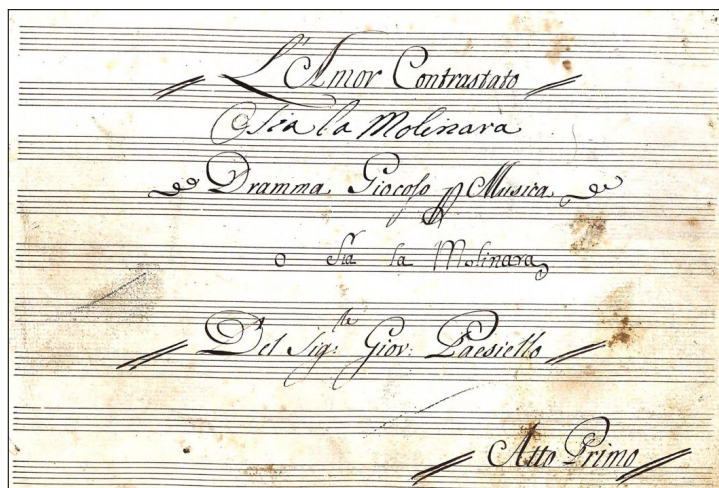 L'Amor Contrastato
Osia la Molinara
Dramma Giocoso p Musica
o sia la Molinara
Del Sig.re Giov: Paesiello
Atto Primo